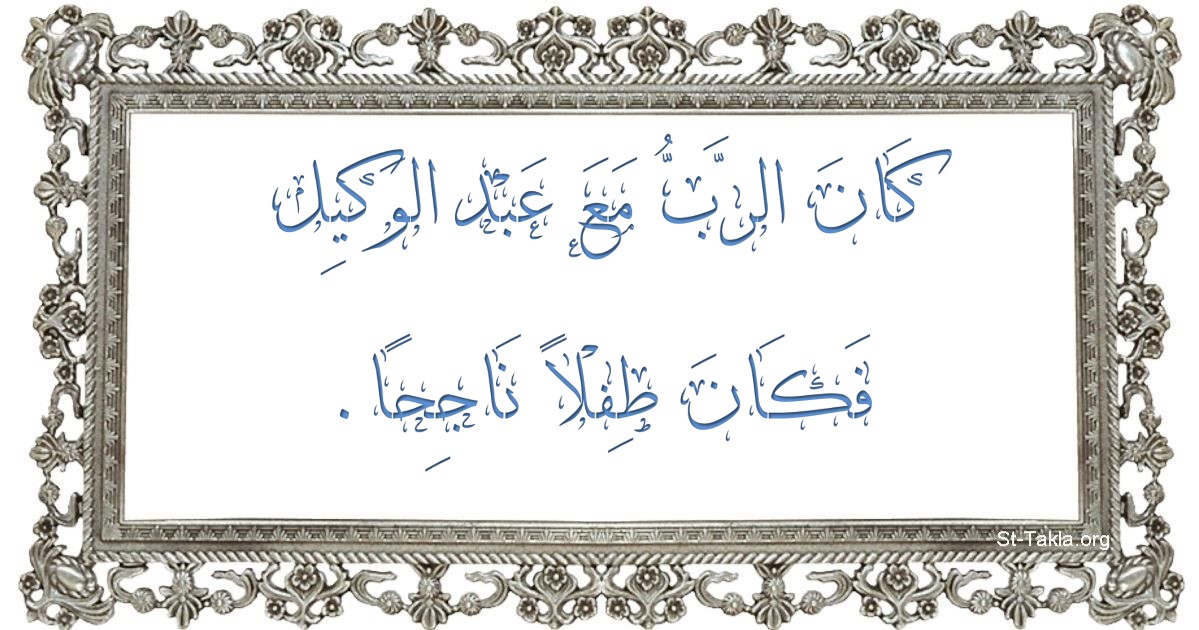 كَانَ الرَّبُّ مَعَ عَبْد الوَكِيلِ
فَكَانَ طِفْلاً نَاجِحًا .
St-Takla.org